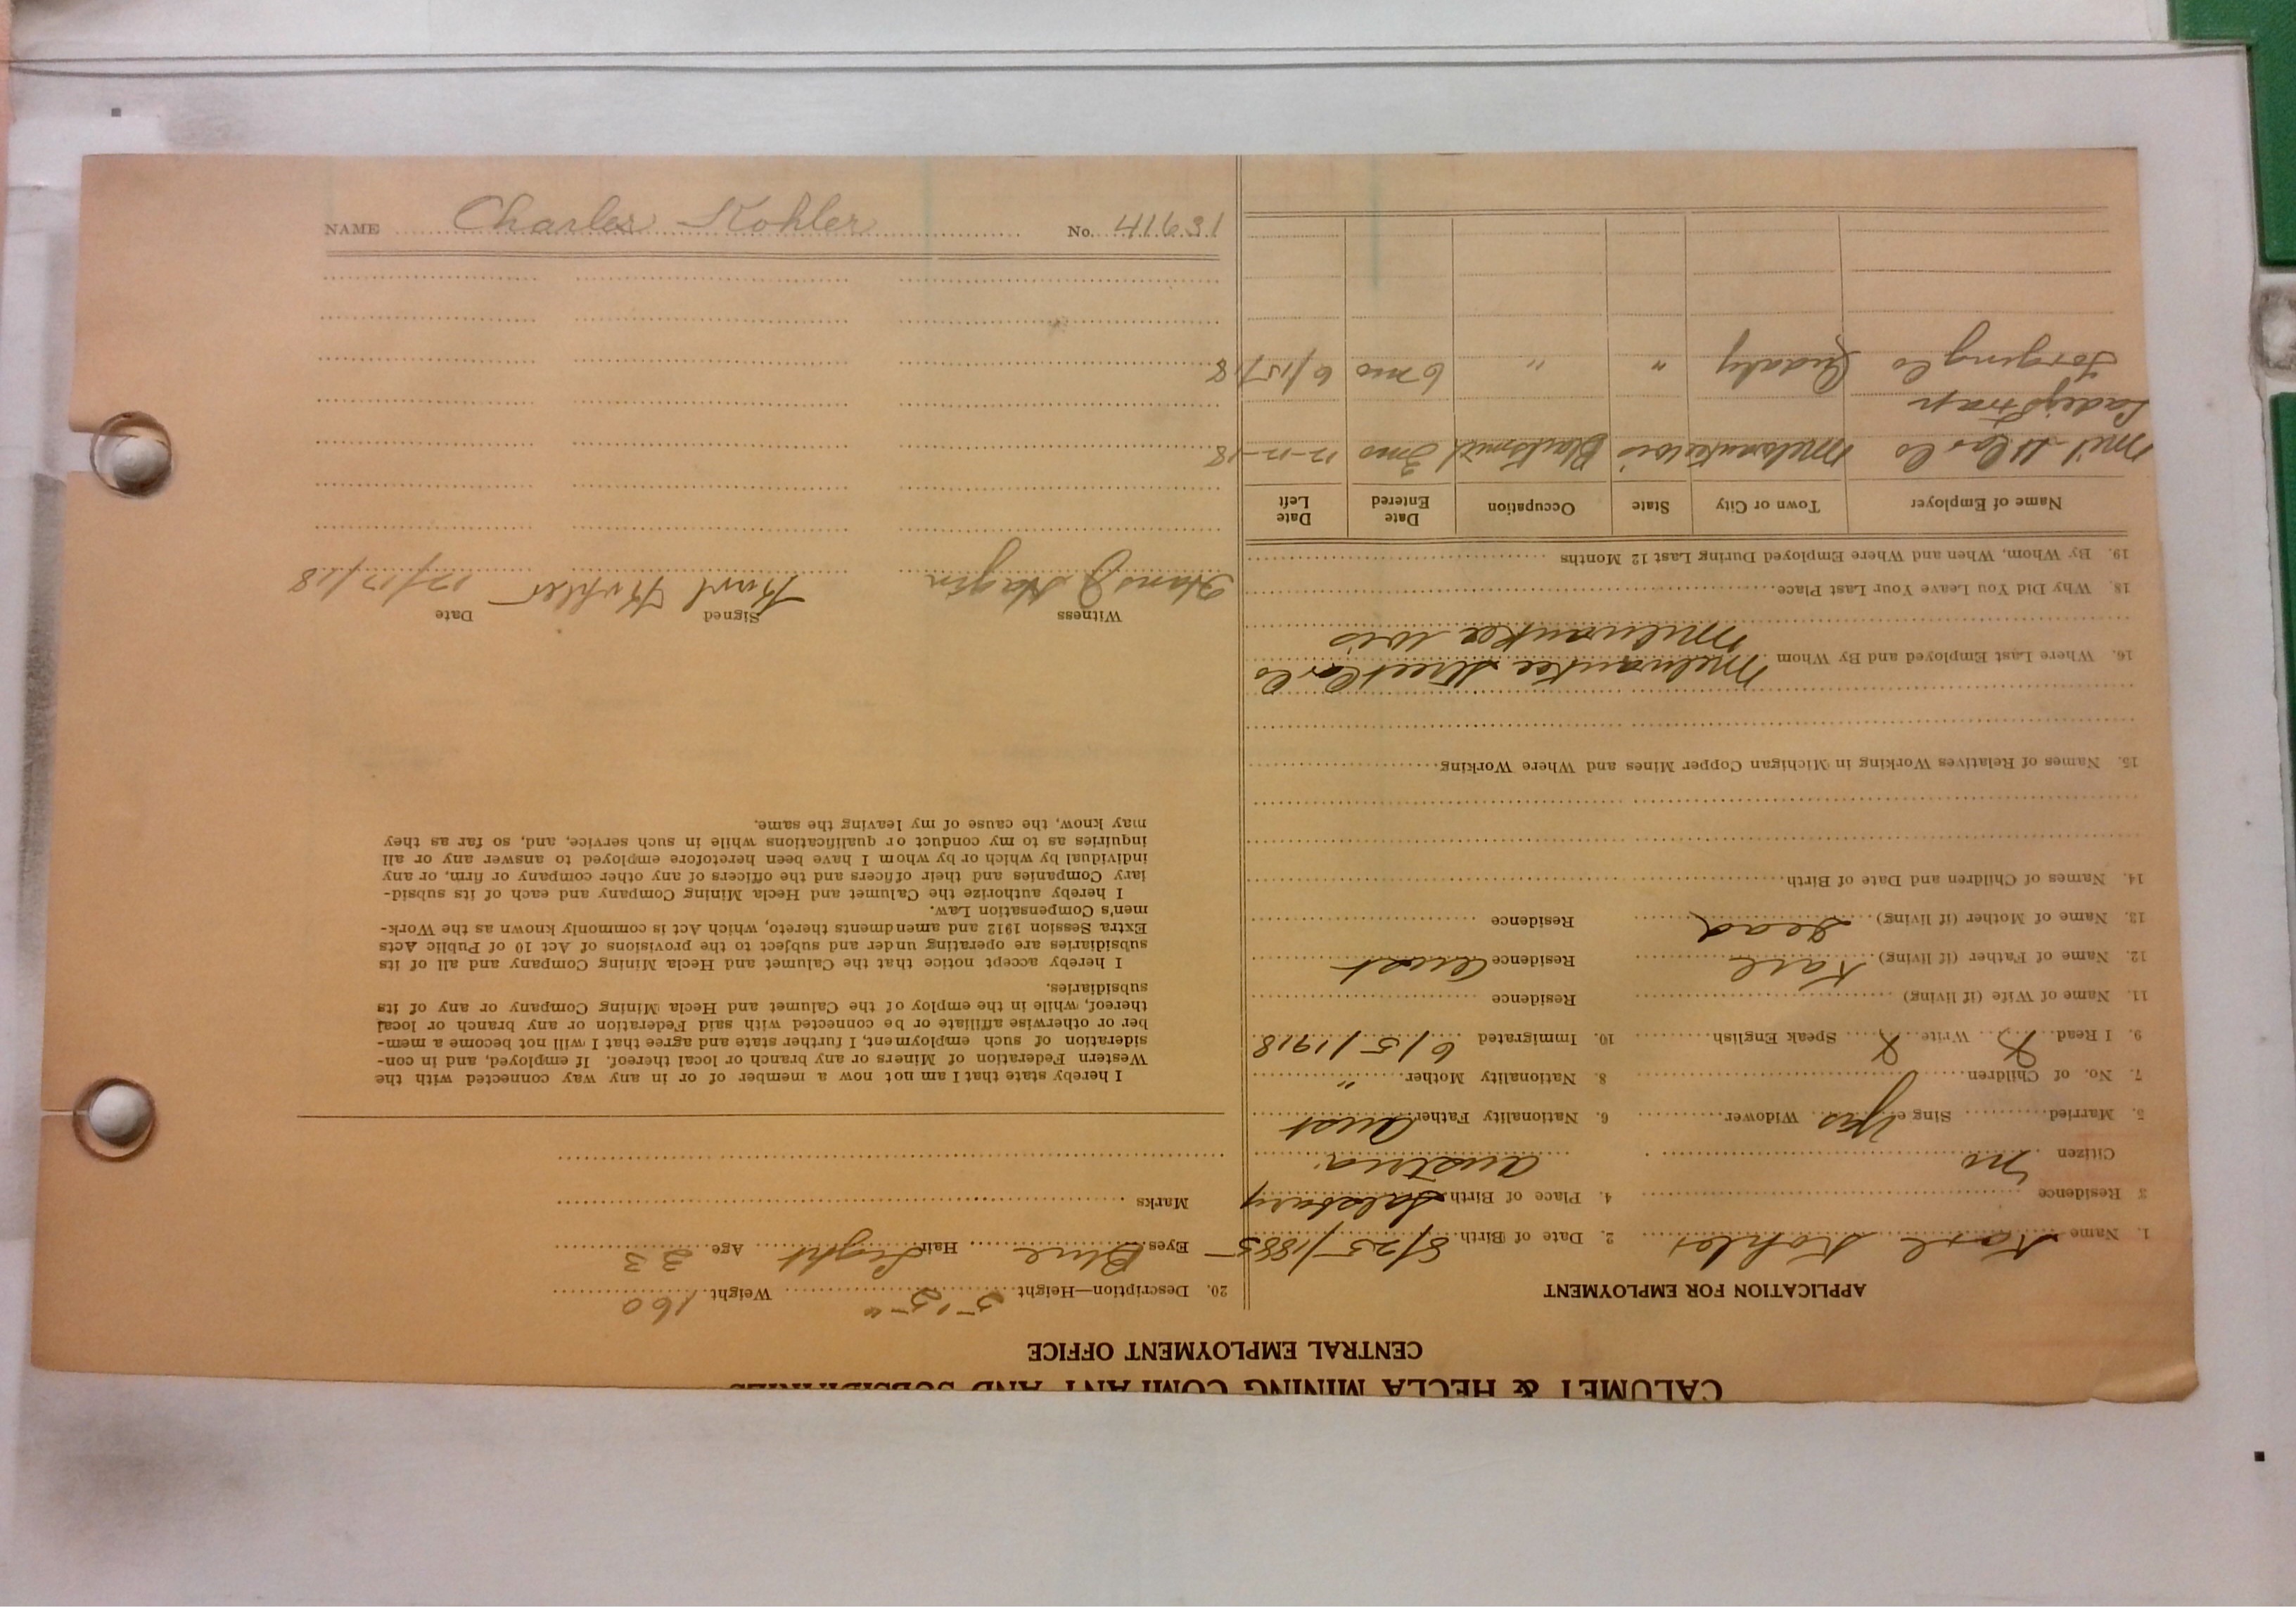 CALUMET & HECLA MINING COMPANY AND SUBSIDIARIES
CENTRAL EMPLOYMENT OFFICE
APPLICATION FOR EMPLOYMENT
1. Name Karl Kohler 2. Date of Birth 8/25/1885
3 Residence 4. Place of Birth Salsburg
Citizen no Austria
5. Married Single yes Widower 6. Nationality Father Aust
7. No. of Children 8. Nationality Mother "
9. I Read X Write X Speak English 10. Immigrated 6/5/1918
11. Name of Wife (if living) Residence
12. Name of Father (if living) Karl Residence Aust
13. Name of Mother (if living) Dead Residence
14. Names of Children and Date of Birth
15. Names of Relatives Working in Michigan Copper Mines and Where Working
Milwaukee Street Car Co
16. Where Last Employed and By Whom
Milwaukee Wis
18. Why Did You Leave Your Last Place
19. By Whom, When and Where Employed During Last 12 Months
Name of Employer Town or City State Occupation Date Entered Date Left
Mil St Car Co Milwaukee Wis Blacksmith 3mo 12-12-18
Forging Co Cudahy " " 6 mo 6/15/18
20. Description—Height 5' 5" Weight 160
Eyes Blue Hair Light Age 33
Marks
I hereby state that I am not now a member of or in any way connected with the
Western Federation of Miners or any branch or local thereof. If employed, and in con-
sideration of such employment, I further state and agree that I will not become a mem-
ber or otherwise affiliate or be connected with said Federation or any branch or local
thereof, while in the employ of the Calumet and Hecla Mining Company or any of its
subsidiaries.
I hereby accept notice that the Calumet and Hecla Mining Company and all of its
subsidiaries are operating under and subject to the provisions of Act 10 of Public Acts
Extra Session 1912 and amendments thereto, which Act is commonly known as the Work-
men's Compensation Law.
I hereby authorize the Calumet and Hecla Mining Company and each of its subsid-
iary Companies and their officers and the officers of any other company or firm, or any
individual by which or by whom I have been heretofore employed to answer any or all
inquiries as to my conduct or qualifications while in such service, and, so far as they
may know, the cause of my leaving the same.
Witness Signed Date
Hans J Karl Kohler 12/17/18
NAME Charles Kohler No. 41631